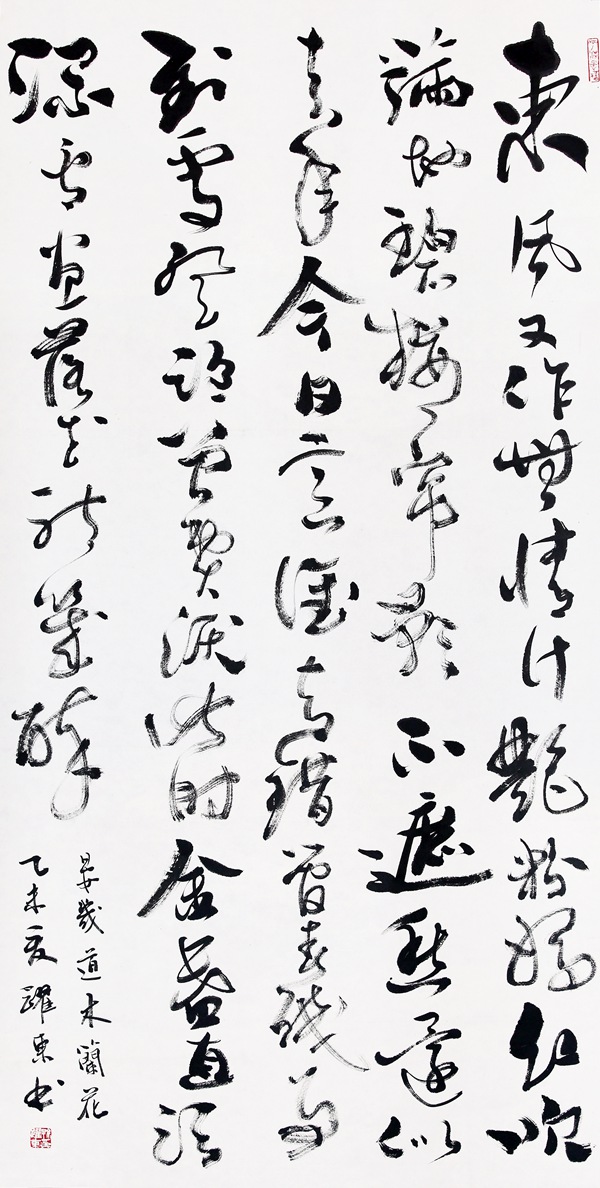 東風又作無情計艷粉嬌紅吹
滿地碧樓帘影不遮愁還似
去年今日意誰知錯管春殘事
到處登臨曾費淚此時金盞直須
深看盡落花能幾醉
晏幾道木蘭花
乙未夏躍東書